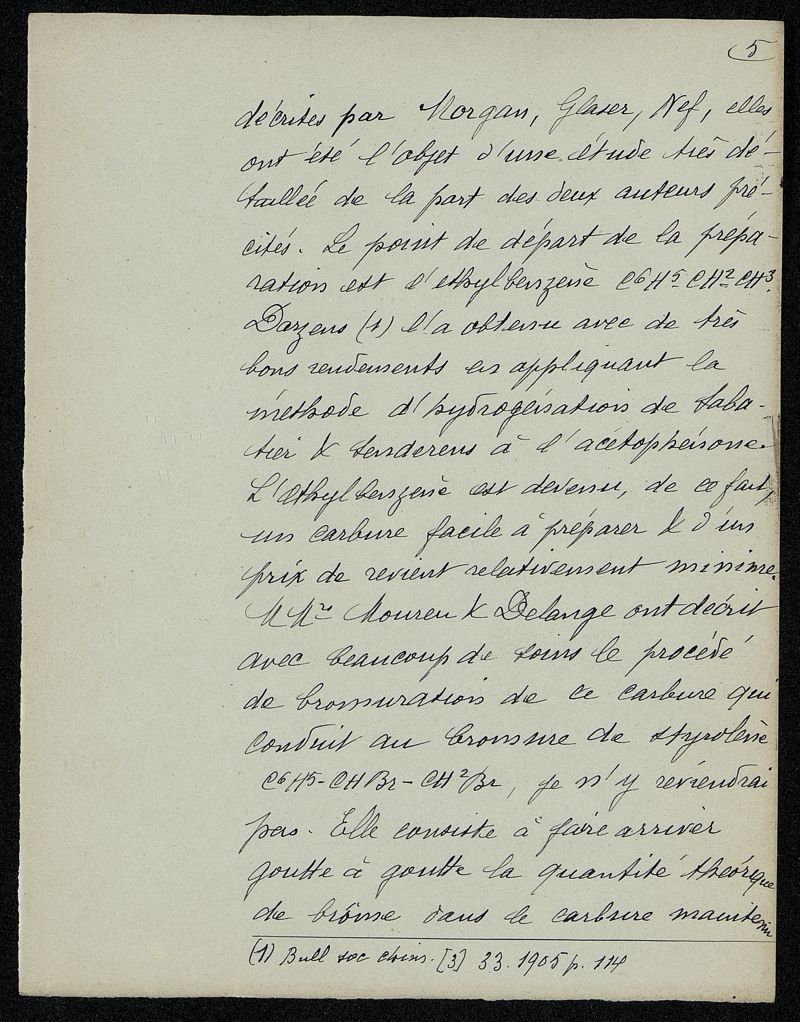 5
décrites par Morgan, Glaser, Nef, elles
ont été l'objet d'une étude très dé-
taillée de la part des deux auteurs pré-
cités. Le point de départ de la prépa-
ration est l'éthylbenzène C6H5-CH2-CH3.
Darzens (1) l'a obtenu avec de très
bons rendements en appliquant la
méthode d'hydrogénisation de Saba-
tier & Senderens à l'acétophénone.
L'éthylbenzène est devenu, de ce fait,
un carbure facile à préparer & d'un
prix de revient relativement minime.
MMrs Moureu & Delange ont décrit
avec beaucoup de soins le procédé
de bromuration de ce carbure qui
conduit au bromure de styrolène
C6H5-CHBr-CH2Br, je n'y reviendrai
pas. Elle consiste à faire arriver
goutte à goutte la quantité théorique
de brôme dans le carbure maintenu
(1) Bull soc chim. [3] 33. 1905 p. 114